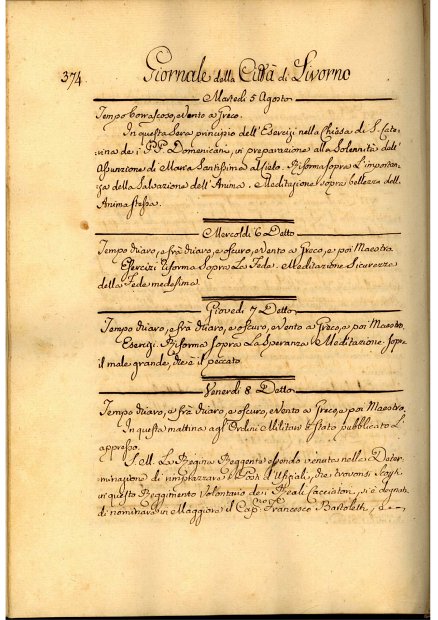 374
Giornale della Città di Livorno
Martedi 5 Agosto
Tempo borrascoso, e Vento a Greco.
In questa Sera principio dell'Esercizi nella Chiesa di S. Cate-
rina de i PP. Domenicani, in preparazione alla Solennità dell'
Assunzione di Maria Santissima al Cielo. Riforma sopra L'importan-
za della Salvazione dell'Anima, e Meditazione sopra bellezza dell'
Anima stessa.
Mercoldi 6 Detto
Tempo chiaro, e frà chiaro, e oscuro, e Vento a Greco, e poi Maestro
Esercizi Riforma Sopra La Fede. Meditazione Sicurezza
della Fede medesima
Giovedi 7 Detto
Tempo chiaro, e frà chiaro, e oscuro, e Vento a Greco, e poi Maestro.
Esercizi. Riforma sopra La Speranza e Meditazione sopra
il male grande, che è il peccato.
Venerdi 8 Detto
Tempo chiaro, e frà chiaro, e oscuro, e Vento a Greco, e poi Maestro.
In questa mattina agl'Ordini Militari è Stato pubblicato L'
appresso.
S. M. La Regina Reggente essendo venuta nella Deter-
minazione di rimpiazzare i Posti d'Uffiziali, che trovonsi
in questo Reggimento Volontario de i Reali Cacciatori, si è degnata
di nominare in Maggiore il Cap. Francesco